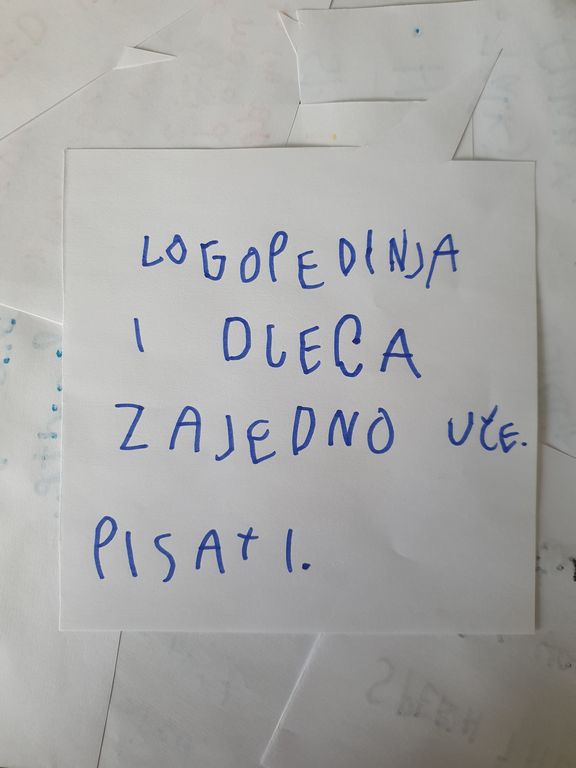 LOGOPEDINJA
I DLECA
ZAJEDNO UČE.
PISATI.